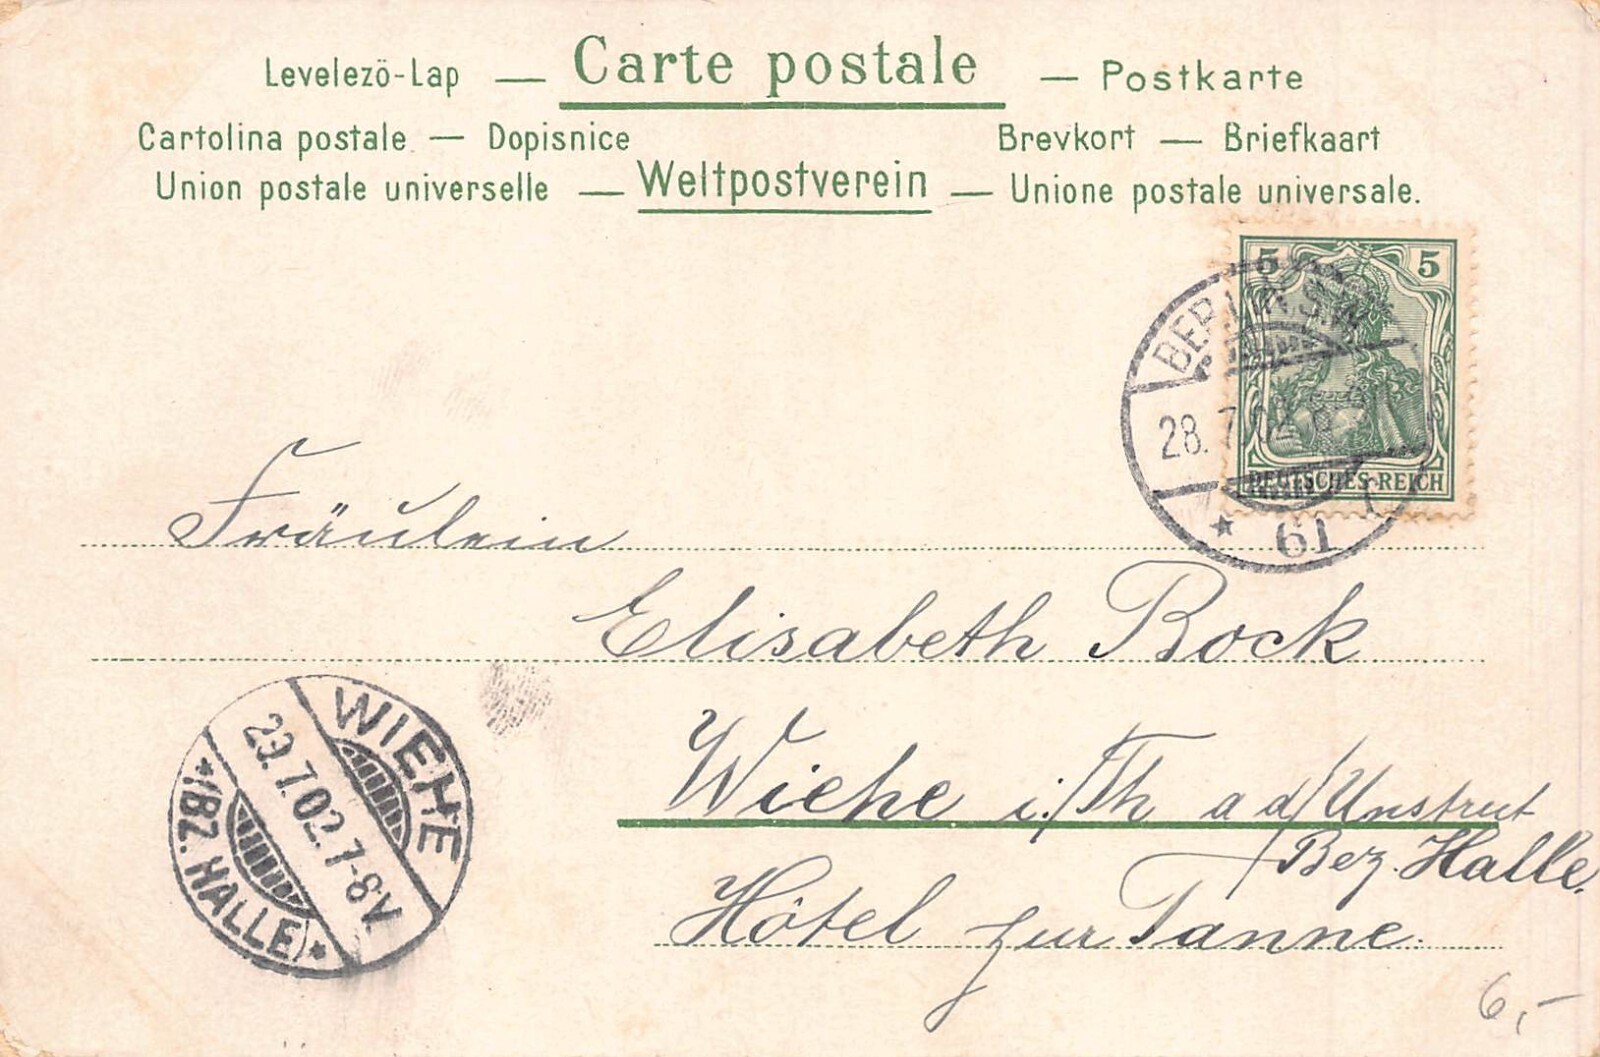 Levelezö-Lap — Carte postale — Postkarte
Cartolina postale — Dopisnice Brevkort — Briefkaart
Union postale universelle — Weltpostverein — Unione postale universale.
5 5
DEUTSCHES REICH
BERLIN. S.W.
28. 7. 02
* 61
Fräulein
Elisabeth Bock
Wiehe i./Th a d/Unstrut
Bez. Halle.
Hôtel zur Tanne.
WIEHE
29. 7. 02. 7-8V.
*(BZ. HALLE)*
6,-